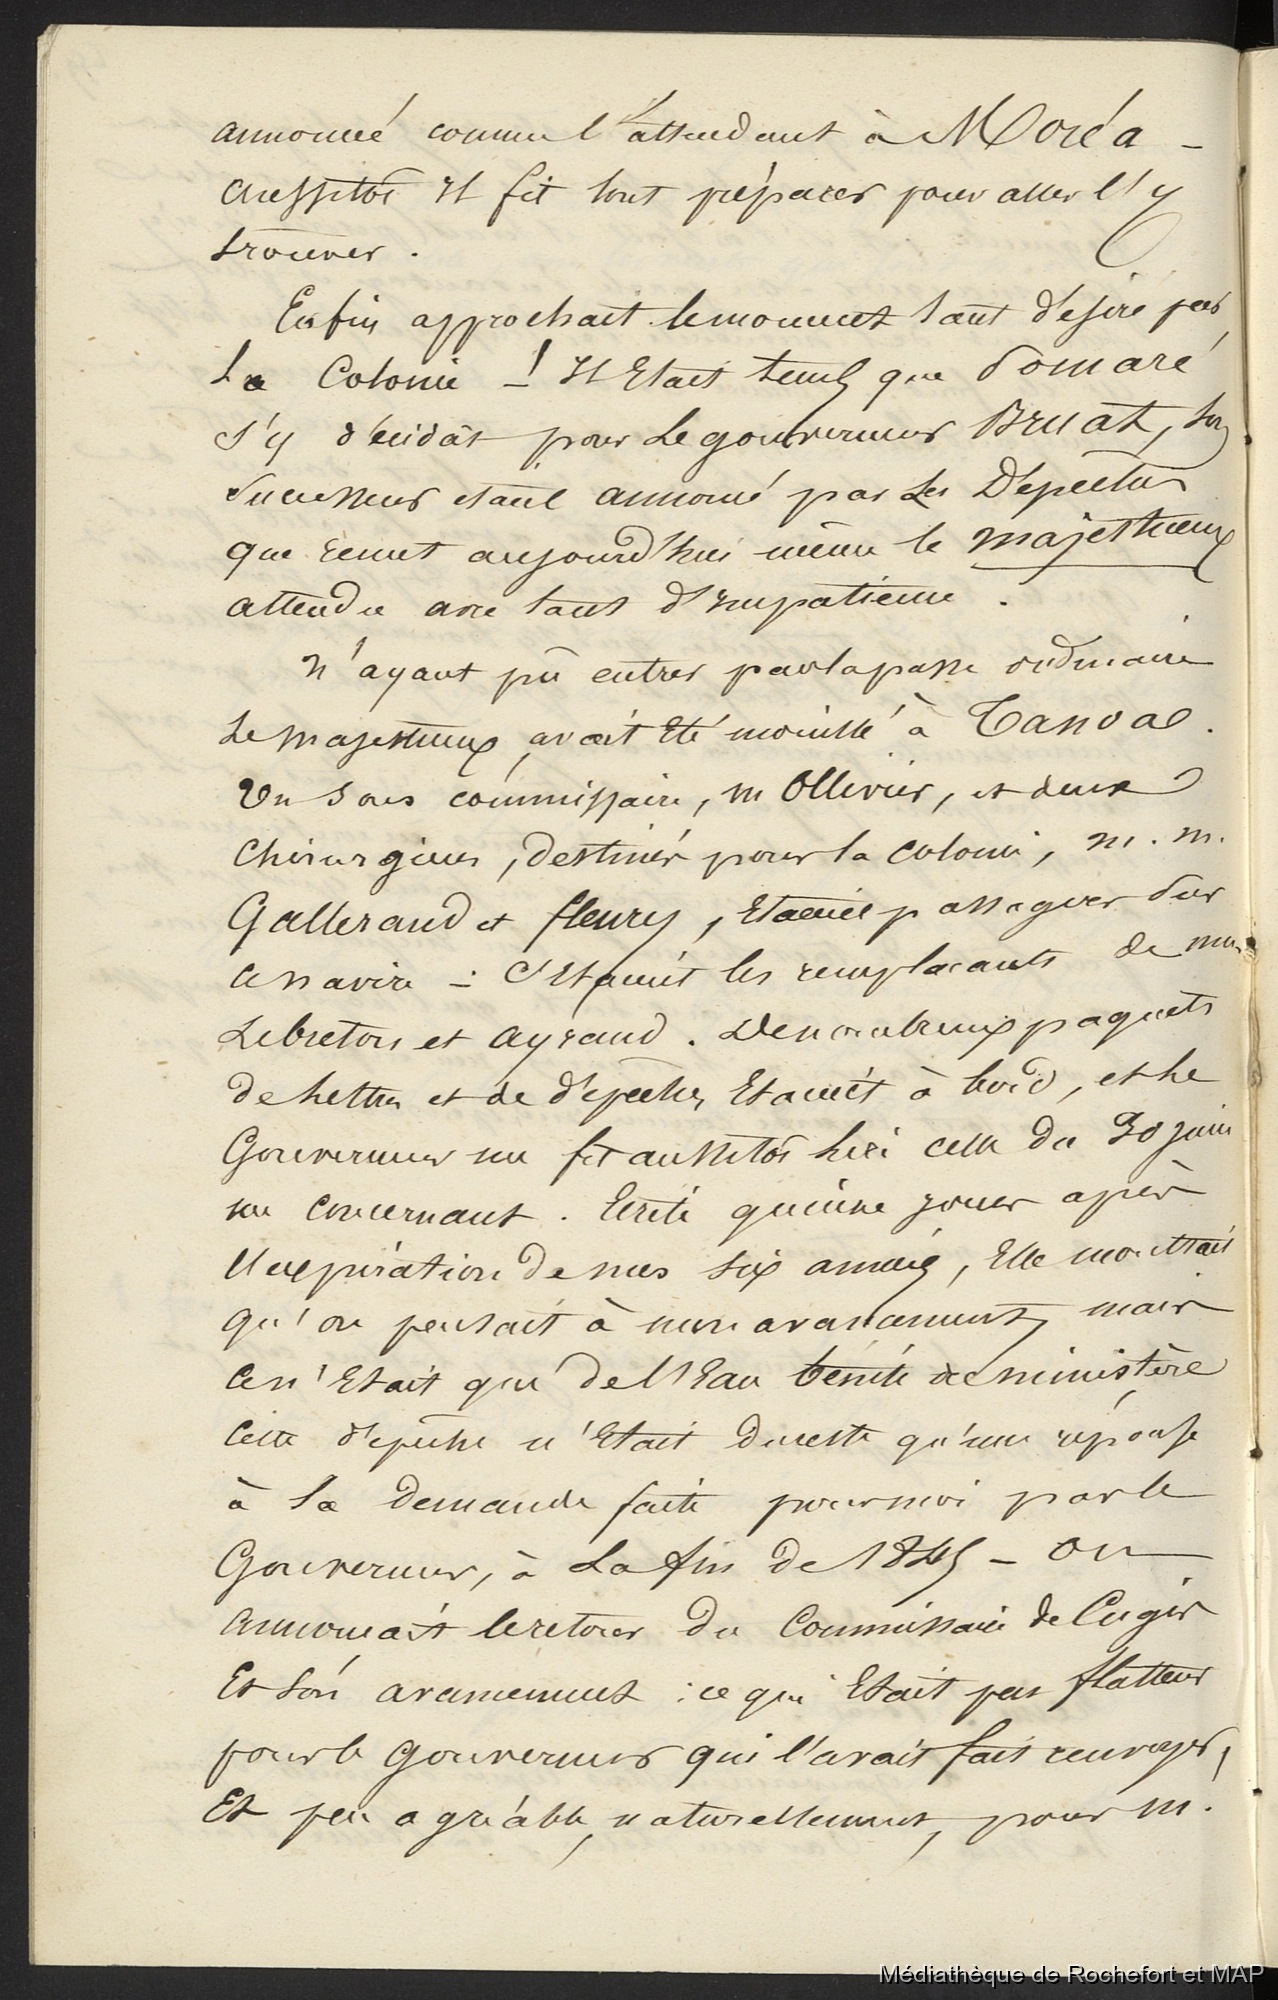 annoncé comme l'attendant à Moréa -
aussitôt il fit tout préparer pour aller l'y
trouver.
Enfin approchait le moment tant désiré par
la Colonie -! Il Etait tems que Pomaré
s'y décidât pour le gouverneur Bruat, son
successeur etant annoncé par les Dépêches
que remet aujourd'hui même le majestueux
attendu avec tant d'impatience.
N'ayant pû entrer par la passe ordinaire
le majestueux avait Eté mouillé à Tanoae.
Un sous commissaire, m Ollivier, et deux
Chirurgiens, destinés pour la colonie, m.m.
Gallerand et fleury, Etaient passagers sur
ce navire - C'Etaient les remplacants de mm
Lebreton et Ayraud. De nombreux paquets
de lettres et de dépêches Etaient à bord, et le
Gouverneur me fit aussitôt lire celle du 30 juin
me concernant. Ecrite quinze jours après
l'expiration de mes six années, Elle montrait
qu'on pensait à mon avancement, mais
ce n'Etait que de l'Eau bénite de ministère
Cette dépêche n'Etait du reste qu'une réponse
à la demande faite pour moi par le
Gouverneur, à la fin de 1845 - On
annoncait le retour du Commissaire de Cugis
Et son avancement : ce qui Etait peu flatteur
pour le gouverneur qui l'avait fait renvoyer,
Et peu agréable, naturellement, pour m.
Médiathèque de Rochefort et MAP